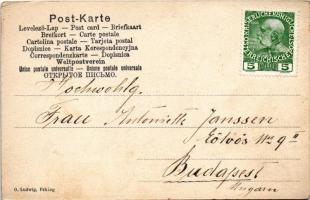 Post-Karte
Levelező-Lap — Post card — Briefkaart
Brefkort — Carte postale
Cartolina postale — Tarjeta postal
Dopisnice — Karta Korespondencyjna
Correspondenzkarte — Dopisnica
Weltpostverein
Union postale universelle — Unione postale universale
ОТКРЫТОЕ ПИСЬМО.
5 5
Hochwohlg.
Frau Antoniette Janssen
Eötvös
Budapest
Ungarn
G. Ludwig, Peking